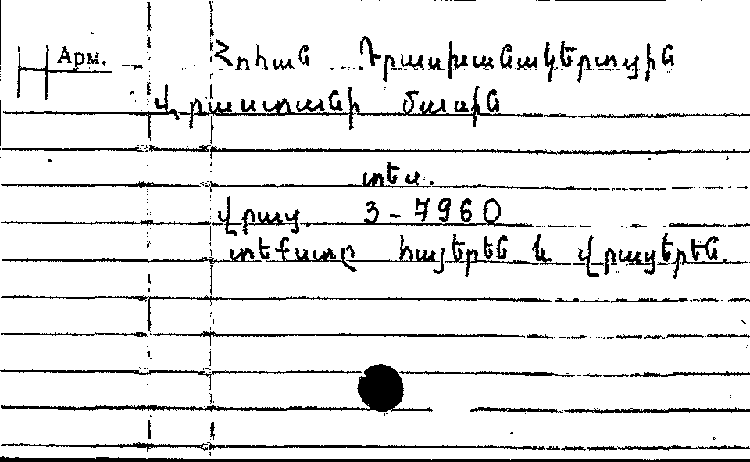 Арм.
Հոհան Դրասխանակերտցին
Վրաստանի մասին
տես.
Վրաց. 3-7960
տեքստը հայերեն և վրացերեն.